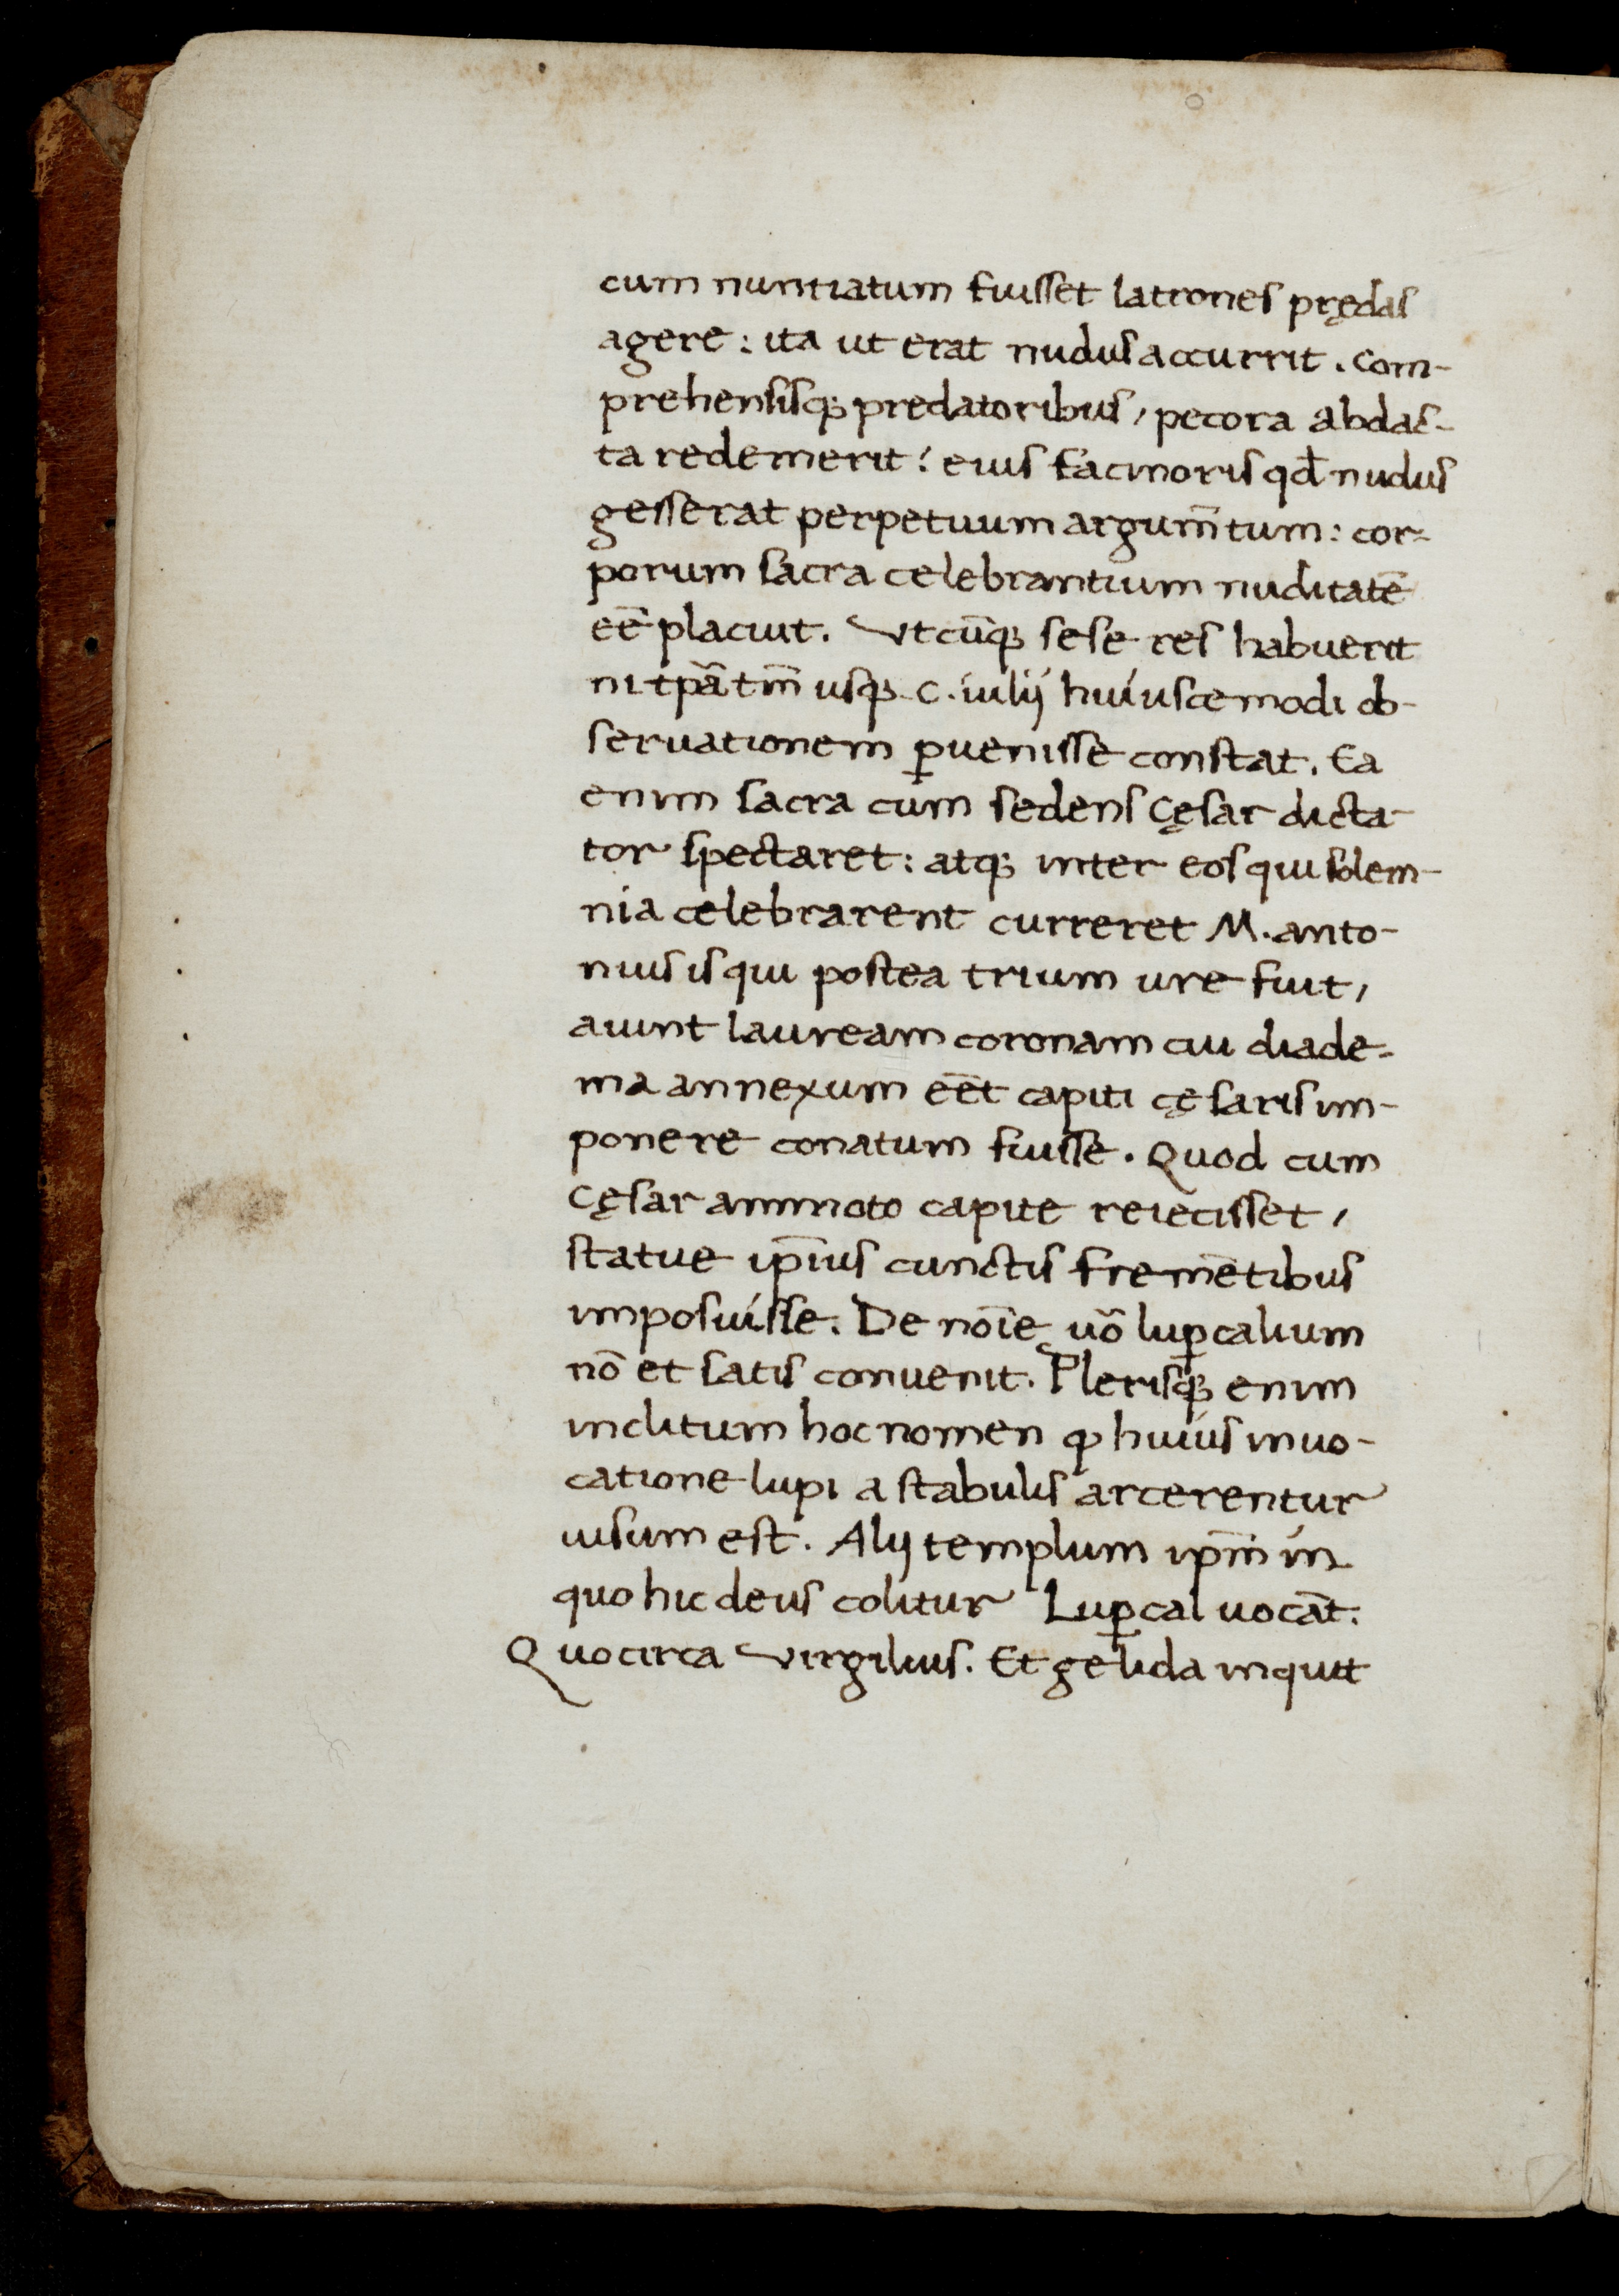 cum nuntiatum fuisset latrones prędas
agere: ita ut erat nudus accurrit. Com-
prehensisq; predatoribus, pecora abdac-
ta redemerit: eius facinoris qd̄ nudus
gesserat perpetuum argum̄tum: cor-
porum sacra celebrantium nuditatē
eē placuit. Vtcūq; sese res habuerit
ni tpā tm̄ usq; C. iulij huiuscemodi ob-
seruationem ꝑuenisse constat. Ea
enim sacra cum sedens Cęsar dicta-
tor spectaret: atq; inter eos qui solem-
nia celebrarent curreret M. anto-
nius is qui postea trium uire fuit,
aiunt lauream coronam cui diade-
ma annexum eēt capiti cęsaris im-
ponere conatum fuisse. Quod cum
Cęsar ammoto capite reiecisset,
statue ip̄ius cunctis fremētibus
imposuisse. De noīe uō luꝑcalium
nō et satis conuenit. Plerisq; enim
inditum hoc nomen ꝙ huius inuo-
catione lupi a stabulis arcerentur
uisum est. Alij templum ip̄m in
quo hic deus colitur Luꝑcal uocāt.
Quocirca Virgilius. Et gelida inquit